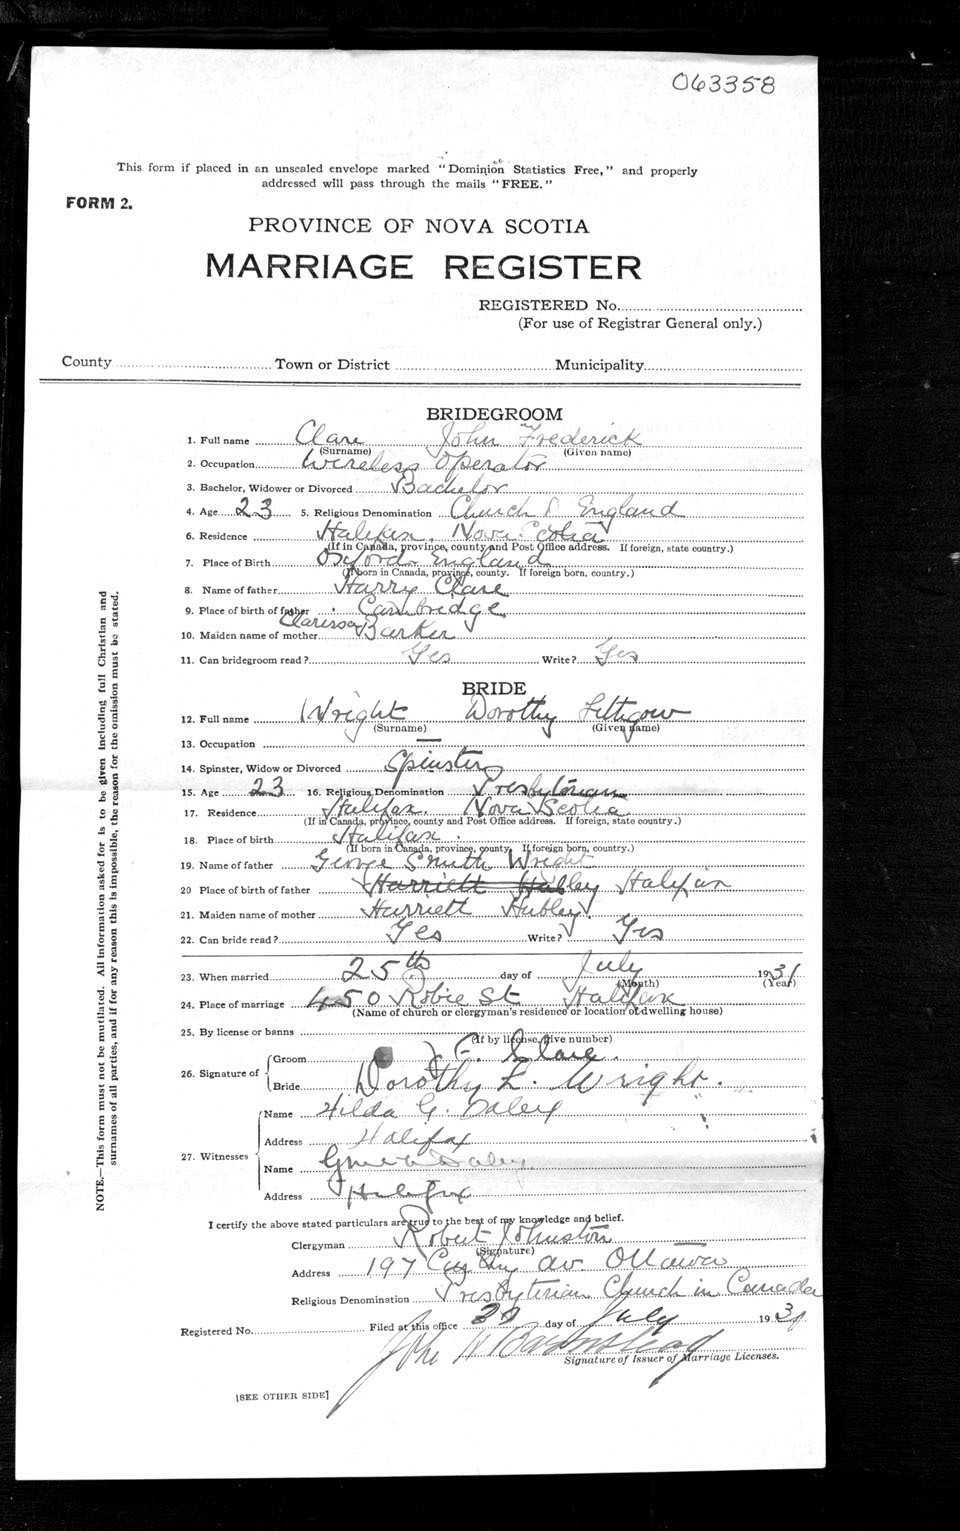 063358
This form if placed in an unsealed envelope marked "Dominion Statistics Free," and properly
addressed will pass through the mails "FREE."
FORM 2.
PROVINCE OF NOVA SCOTIA
MARRIAGE REGISTER
REGISTERED No.
(For use of Registrar General only.)
County Town or District Municipality
BRIDEGROOM
1. Full name Clare John Frederick
(Surname) (Given name)
2. Occupation Wireless Operator
3. Bachelor, Widower or Divorced Bachelor
4. Age 23 5. Religious Denomination Church of England
6. Residence Halifax, Nova Scotia
(If in Canada, province, county and Post Office address. If foreign, state country.)
7. Place of Birth Oxford England
(If born in Canada, province, county. If foreign born, country.)
8. Name of father Harry Clare
9. Place of birth of father Cambridge
10. Maiden name of mother Clarissa Barker
11. Can bridegroom read? Yes Write? Yes
BRIDE
12. Full name Wright Dorothy Lithgow
(Surname) (Given name)
13. Occupation —
14. Spinster, Widow or Divorced Spinster
15. Age 23 16. Religious Denomination Presbyterian
17. Residence Halifax, Nova Scotia
(If in Canada, province, county and Post Office address. If foreign, state country.)
18. Place of birth Halifax.
(If born in Canada, province, county. If foreign born, country.)
19. Name of father George Smith Wright
20 Place of birth of father Harriett Hubley Halifax
21. Maiden name of mother Harriett Hubley
22. Can bride read? Yes Write? Yes
23. When married 25th day of July 1931
(Month) (Year)
24. Place of marriage 450 Robie St Halifax
(Name of church or clergyman's residence or location of dwelling house)
25. By license or banns
(If by license, give number)
26. Signature of
Groom J F. Clare.
Bride Dorothy L. Wright.
27. Witnesses
Name Hilda G. Daley
Address Halifax
Name Daley
Address Halifax
I certify the above stated particulars are true to the best of my knowledge and belief.
Clergyman Robert Johnston
(Signature)
Address 197 Av. Ottawa
Religious Denomination Presbyterian Church in Canada
Registered No. Filed at this office day of July 1931
John
Signature of Issuer of Marriage Licenses.
[SEE OTHER SIDE]
NOTE.—This form must not be mutilated. All information asked for is to be given including full Christian and
surnames of all parties, and if for any reason this is impossible, the reason for the omission must be stated.